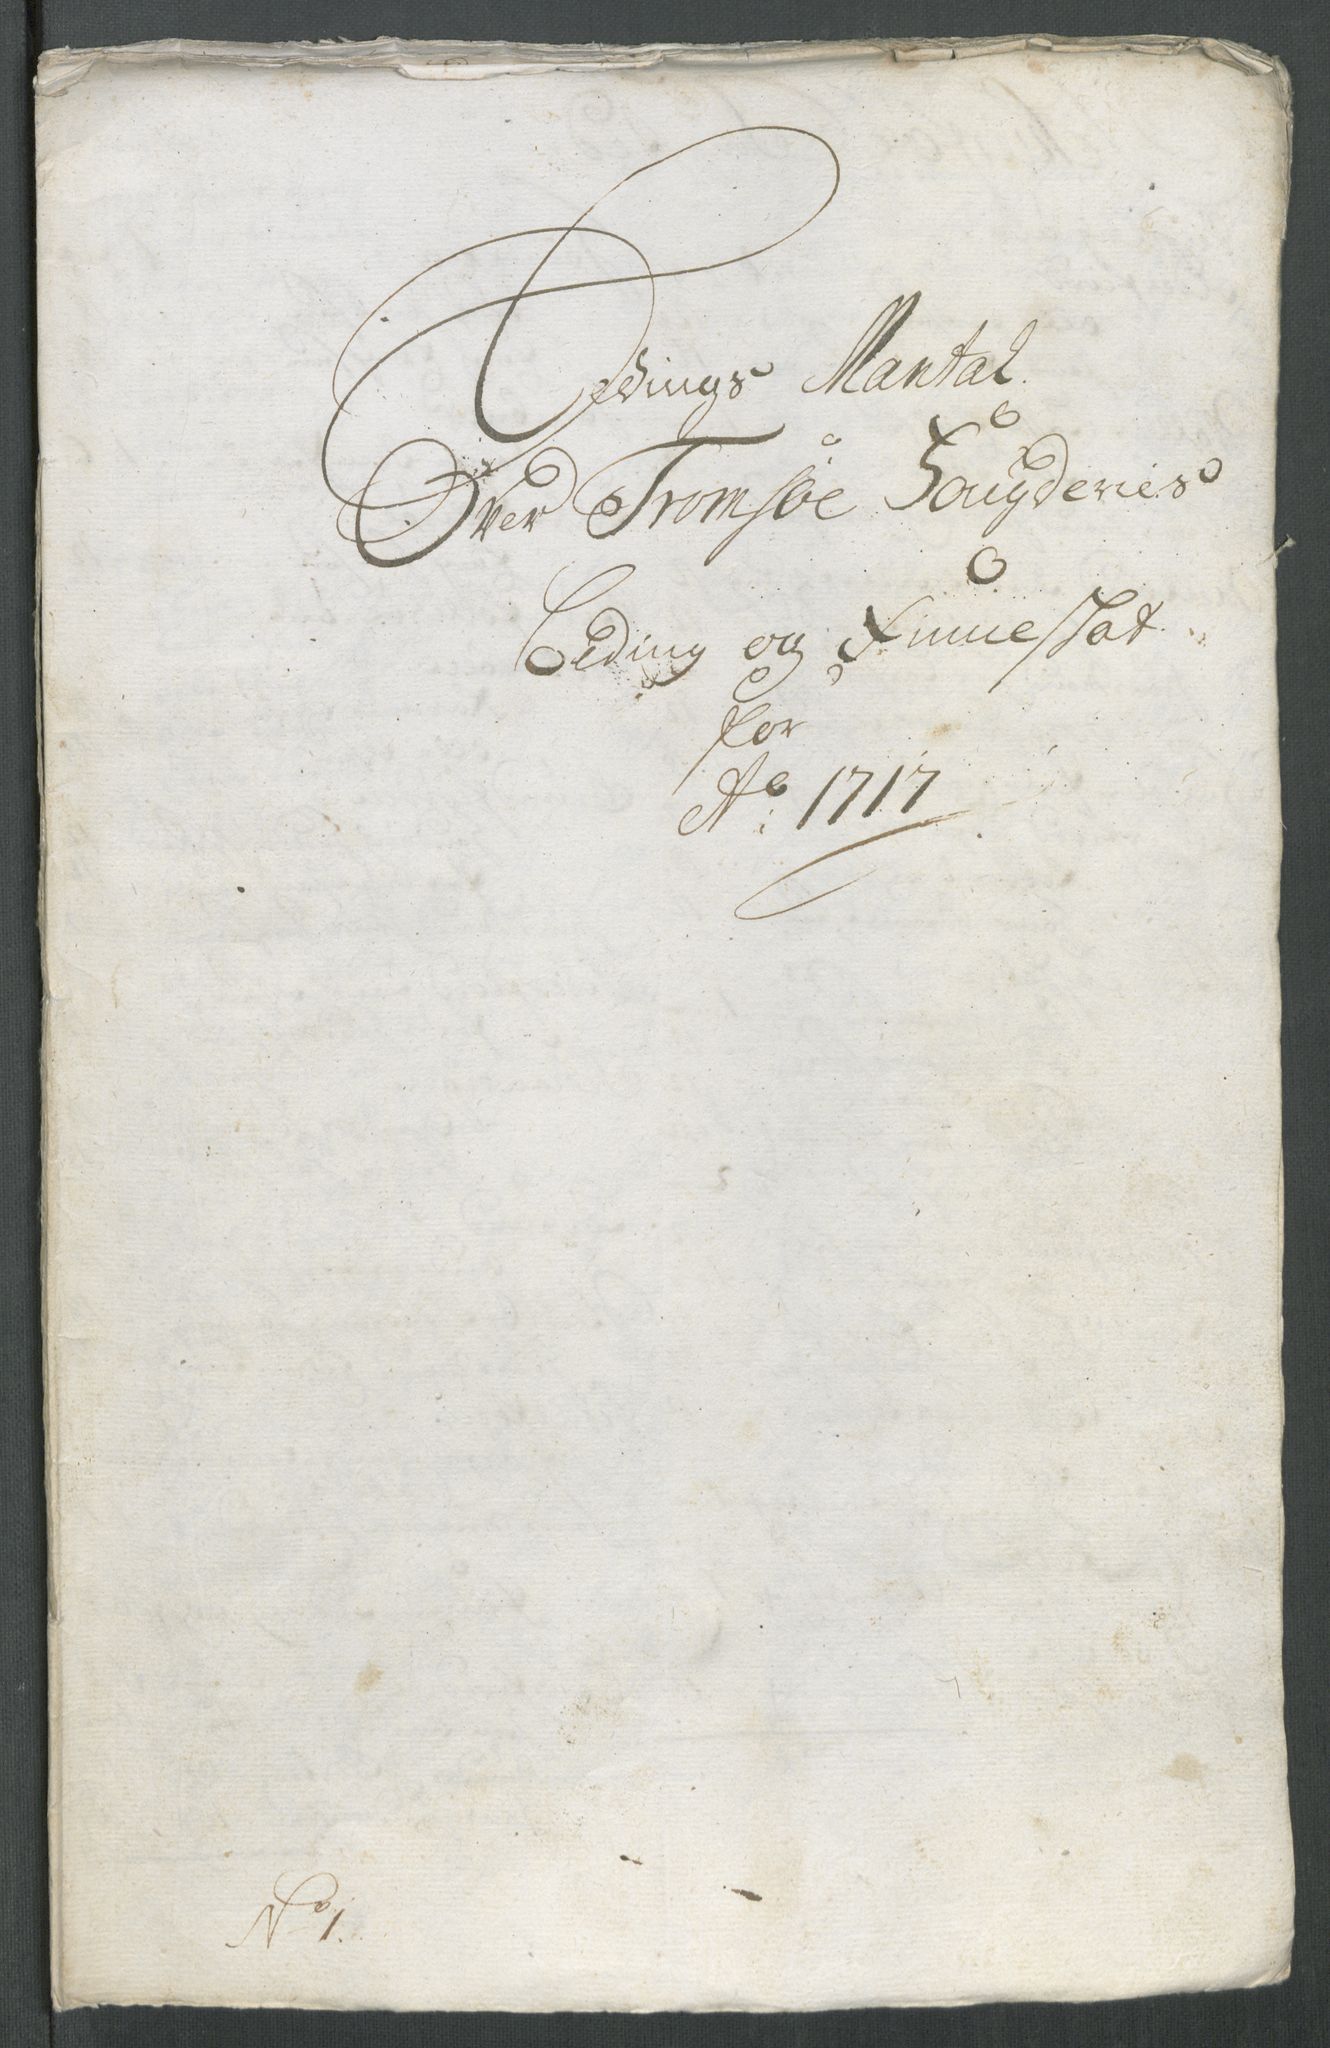 Tedings Mantal
Over Tromsøe Fougderies
Leding og Finneskat
for
Ao: 1717
No 1.